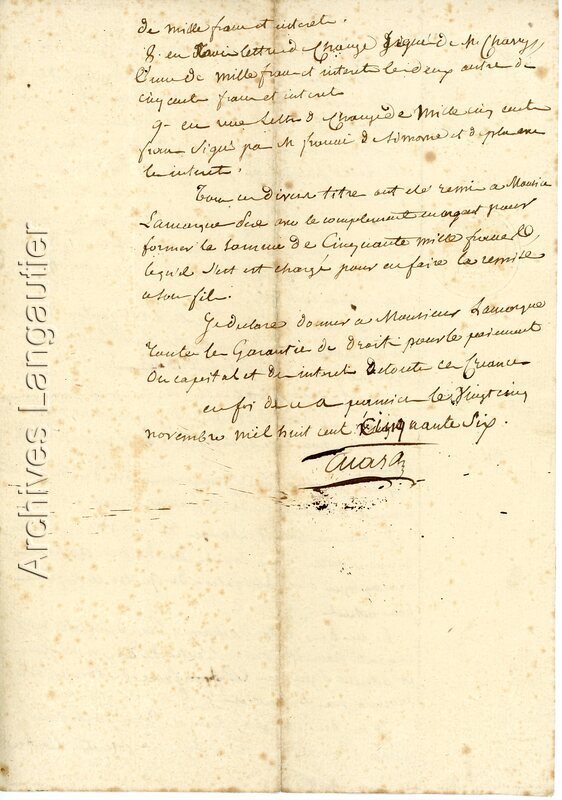 de mille franc et interet.
8. en trois lettre de Change Signé de M Charry
l'une de mille franc et interet les deux autre de
cinq cents franc et interet
9. en une lettre de Change de Mille cinq cents
franc Signé par M de Simorre et de plus avec
les interet.
Tous ces divers titre ont été remis a Monsieur
Lamorque avec le complement en argent pour
former la Somme de Cinquante mille franc
lequel s'est chargé pour en faire la remise
a son fils.
Je declare donner a Monsieur Lamorque
toute la Garantie de Droit pour le paiement
Du capital et des interet de toute ces Creance
en foi de ce a le Vingt cinq
novembre mil huit cent Cinquante Six.
Archives Langautier